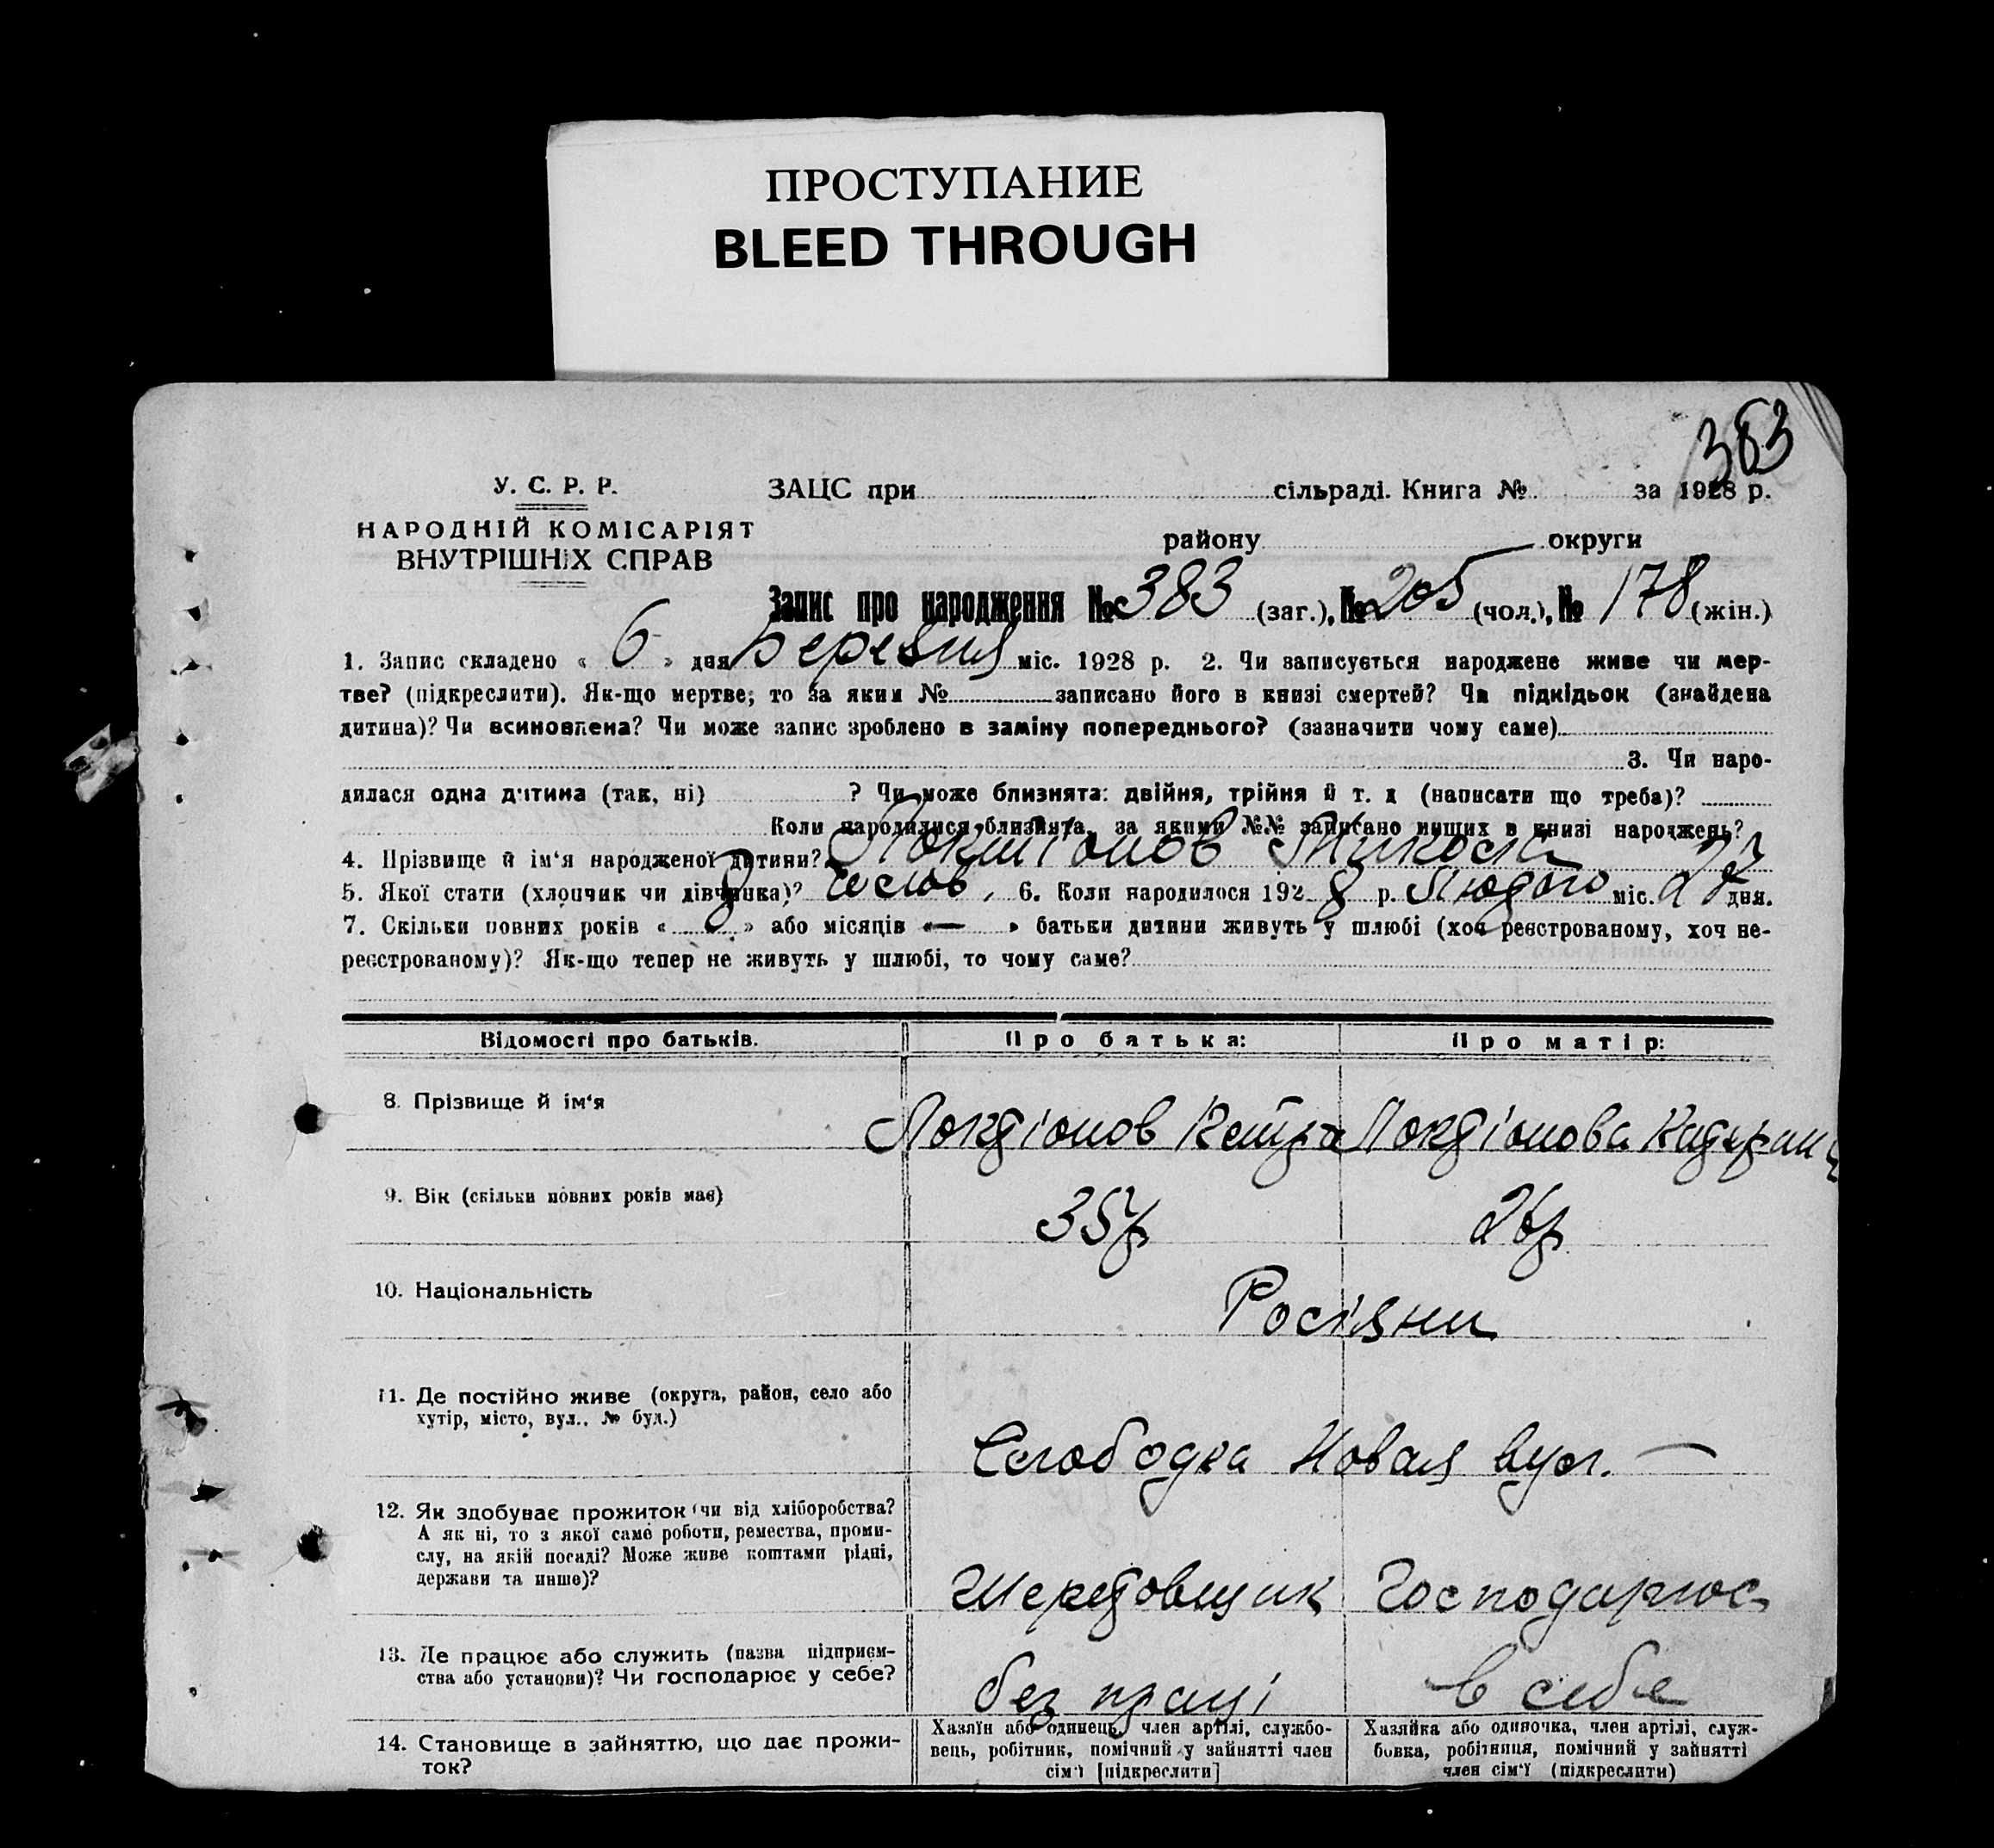 ПРОСТУПАНИЕ
BLEED THROUGH
383
У. С. Р. Р.
ЗАЦС при сільраді. Книга № за 1928 р.
НАРОДНІЙ КОМІСАРІЯТ
ВНУТРІШНІХ СПРАВ
району округи
Запис про народження № 383 (заг.), № 205 (чол.), № 178 (жін.)
1. Запис складено « 6 » дня Березня міс. 1928 р. 2. Чи записується народжене живе чи мер-
тве? (підкреслити). Як-що мертве; то за яким № записано його в книзі смертей? Чи підкідьок (знайдена
дитина)? Чи всиновлена? Чи може запис зроблено в заміну попереднього? (зазначити чому саме)
3. Чи наро-
дилася одна дитина (так, ні) ? Чи може близнята: двійня, трійня й т. д (написати що треба)?
Коли народилися близнята, за якими №№ записано инших в книзі народжень?
4. Прізвище й ім'я народженої дитини? Локтіонов Микола
5. Якої стати (хлопчик чи дівчинка)? чолов. 6. Коли народилося 1928 р. Лютого міс. 27 дня.
7. Скільки повних років « 8 » або місяців «—» батьки дитини живуть у шлюбі (хоч реєстрованому, хоч не-
реєстрованому)? Як-що тепер не живуть у шлюбі, то чому саме?
Відомості про батьків. Про батька: Про матір:
8. Прізвище й ім'я
Локтіонов Локтіонова
9. Вік (скільки повних років має)
35 р 26 р
10. Національність
Росіяни
11. Де постійно живе (округа, район, село або
хутір, місто, вул.. № буд.)
Слободка Новая вул. —
12. Як здобуває прожиток (чи від хліборобства?
А як ні, то з якої саме роботи, ремества, проми-
слу, на якій посаді? Може живе коштами рідні,
держави та инше)?
Шеретовщик
13. Де працює або служить (назва підприєм-
ства або установи)? Чи господарює у себе?
без праці в себе
14. Становище в зайняттю, що дає прожи-
ток?
Хазяїн або одинець, член артілі, службо-
вець, робітник, помічний у зайнятті член
сім'ї [підкреслити]
Хазяйка або одиночка, член артілі, служ-
бовка, робітниця, помічний у зайнятті
член сім'ї (підкреслити)